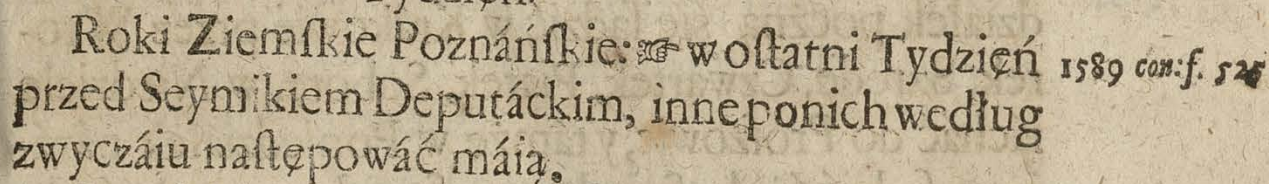 Roki Ziemſkie Poznáńſkie: ☞ w oſtatni Tydzięń 1589 con: f.
przed Seymikiem Deputáckim, inne ponich według
zwyczáiu naſtępowáć máią.